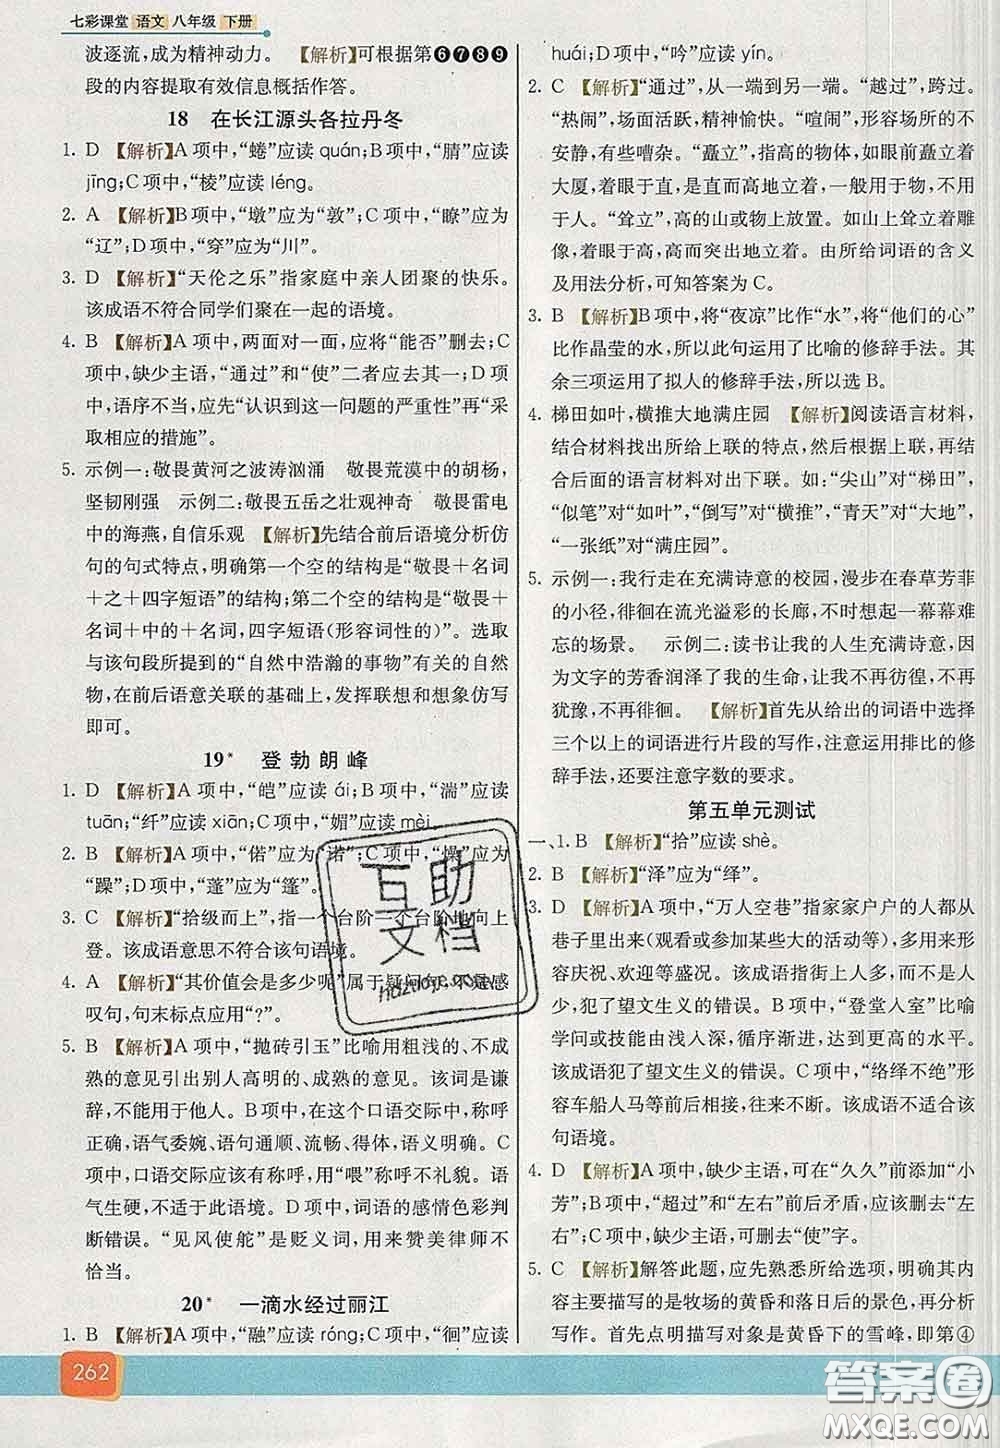 七彩课堂 语文 八年级 下册
波逐流,成为精神动力。 【解析】可根据第❻❼❽❾
段的内容提取有效信息概括作答。
18 在长江源头各拉丹冬
1. D 【解析】A 项中,“蜷”应读 quán;B项中,“腈”应读
jīng;C 项中,“棱”应读 léng。
2. A 【解析】B项中,“墩”应为“敦”;C项中,“瞭”应为
“辽”;D 项中,“穿”应为“川”。
3. D 【解析】“天伦之乐”指家庭中亲人团聚的快乐。
该成语不符合同学们聚在一起的语境。
4. B 【解析】A 项中,两面对一面,应将“能否”删去;C
项中,缺少主语,“通过”和“使”二者应去其一;D 项
中,语序不当,应先“认识到这一问题的严重性”再“采
取相应的措施”。
5. 示例一:敬畏黄河之波涛汹涌 敬畏荒漠中的胡杨,
坚韧刚强 示例二:敬畏五岳之壮观神奇 敬畏雷电
中的海燕,自信乐观 【解析】先结合前后语境分析仿
句的句式特点,明确第一个空的结构是“敬畏＋名词
＋之＋四字短语”的结构;第二个空的结构是“敬畏＋
名词＋中的＋名词,四字短语(形容词性的)”。选取
与该句段所提到的“自然中浩瀚的事物”有关的自然
物,在前后语意关联的基础上,发挥联想和想象仿写
即可。
19* 登勃朗峰
1. D 【解析】A 项中,“皑”应读 ái;B 项中,“湍”应读
tuān;“纤”应读 xiān;C 项中,“媚”应读 mèi。
2. B 【解析】A 项中,“偌”应为“诺”;C项中,“燥”应为
“躁”;D 项中,“蓬”应为“篷”。
3. C 【解析】“拾级而上”,指一个台阶一个台阶地向上
登。该成语意思不符合该句语境。
4. A 【解析】“其价值会是多少呢”属于疑问句,不是感
叹句,句末标点应用“?”。
5. B 【解析】A 项中,“抛砖引玉”比喻用粗浅的、不成
熟的意见引出别人高明的、成熟的意见。该词是谦
辞,不能用于他人。B 项中,在这个口语交际中,称呼
正确,语气委婉、语句通顺、流畅、得体,语义明确。C
项中,口语交际应该有称呼,用“喂”是不礼貌。语
气生硬,不适合这个语境。D 项中,词语的感情色彩判
断错误。“见风使舵”是贬义词,用来赞美律师不
恰当。
20* 一滴水经过丽江
1. B 【解析】A 项中,“融”应读 róng;C 项中,“徊”应读
262
huái;D 项中,“吟”应读 yín。
2. C 【解析】“通过”,从一端到另一端。“越过”,跨过。
“热闹”,场面活跃,精神愉快。“喧闹”,形容场所的不
安静,有些嘈杂。“矗立”,指高的物体,如眼前矗立着
大厦,着眼于直,是直而高地立着。一般不用于山,不用
于人。“耸立”,高的山或物体向上放置。如山上耸立着雕
像,着眼于高,高而突出地立着。由所给词语的含义
及用法分析,可知答案为 C。
3. B 【解析】B项中,将“夜凉”比作“水”,将“他们的心”
比作晶莹的水,所以此句运用了比喻的修辞手法。其
余三项运用了拟人的修辞手法,所以选 B。
4. 梯田如叶,横推大地满庄园 【解析】阅读语言材料,
结合材料找出所给上联的特点,然后根据上联,再根
据后面的语言材料对出下联。如:“尖山”对“梯田”,
“似笔”对“如叶”,“倒写”对“横推”,“青天”对“大地”,
“一张纸”对“满庄园”。
5. 示例一:我行走在充满诗意的校园,漫步在春草芳菲
的小径,徘徊在流光溢彩的长廊,不时想起一幕幕难
忘的场景。 示例二:读书让我的人生充满诗意,
因为文字的芳香润泽了我的生命,我不再彷徨,不再
犹豫,不再徘徊。 【解析】首先从给出的词语中选择
三个以上的词语进行片段的写作,注意运用排比的修
辞手法,还要注意字数的要求。
第五单元测试
一、1. B 【解析】“拾”应读 shè。
2. B 【解析】“泽”应为“绎”。
3. D 【解析】A 项中,“万人空巷”指家家户户的人都从
巷子里出来(观看或参加某些大的活动等),多用来形
容庆祝、欢迎等盛况。该成语指街上人多,而不是人
少,犯了望文生义的错误。B 项中,“登堂入室”比喻
学问或技能由浅入深,循序渐进,达到更高的水平。
该成语犯了望文生义的错误。C 项中,“络绎不绝”形
容车船人马等前后相接,往来不断。该成语不适合该
句语境。
4. D 【解析】A 项中,缺少主语,可在“久久”前添加“小
芳”;B项中,“超过”和“左右”前后矛盾,应该删去“左
右”;C 项中,缺少主语,可删去“使”字。
5. C 【解析】解答此题,应先熟悉所给选项,明确其内
容主要描写的是牧场的黄昏和落日后的景色,再分析
写作。首先点明描写对象是黄昏下的雪峰,即第④
互助
文档
hdzdoyc.com
答案圈
MXQE.COM